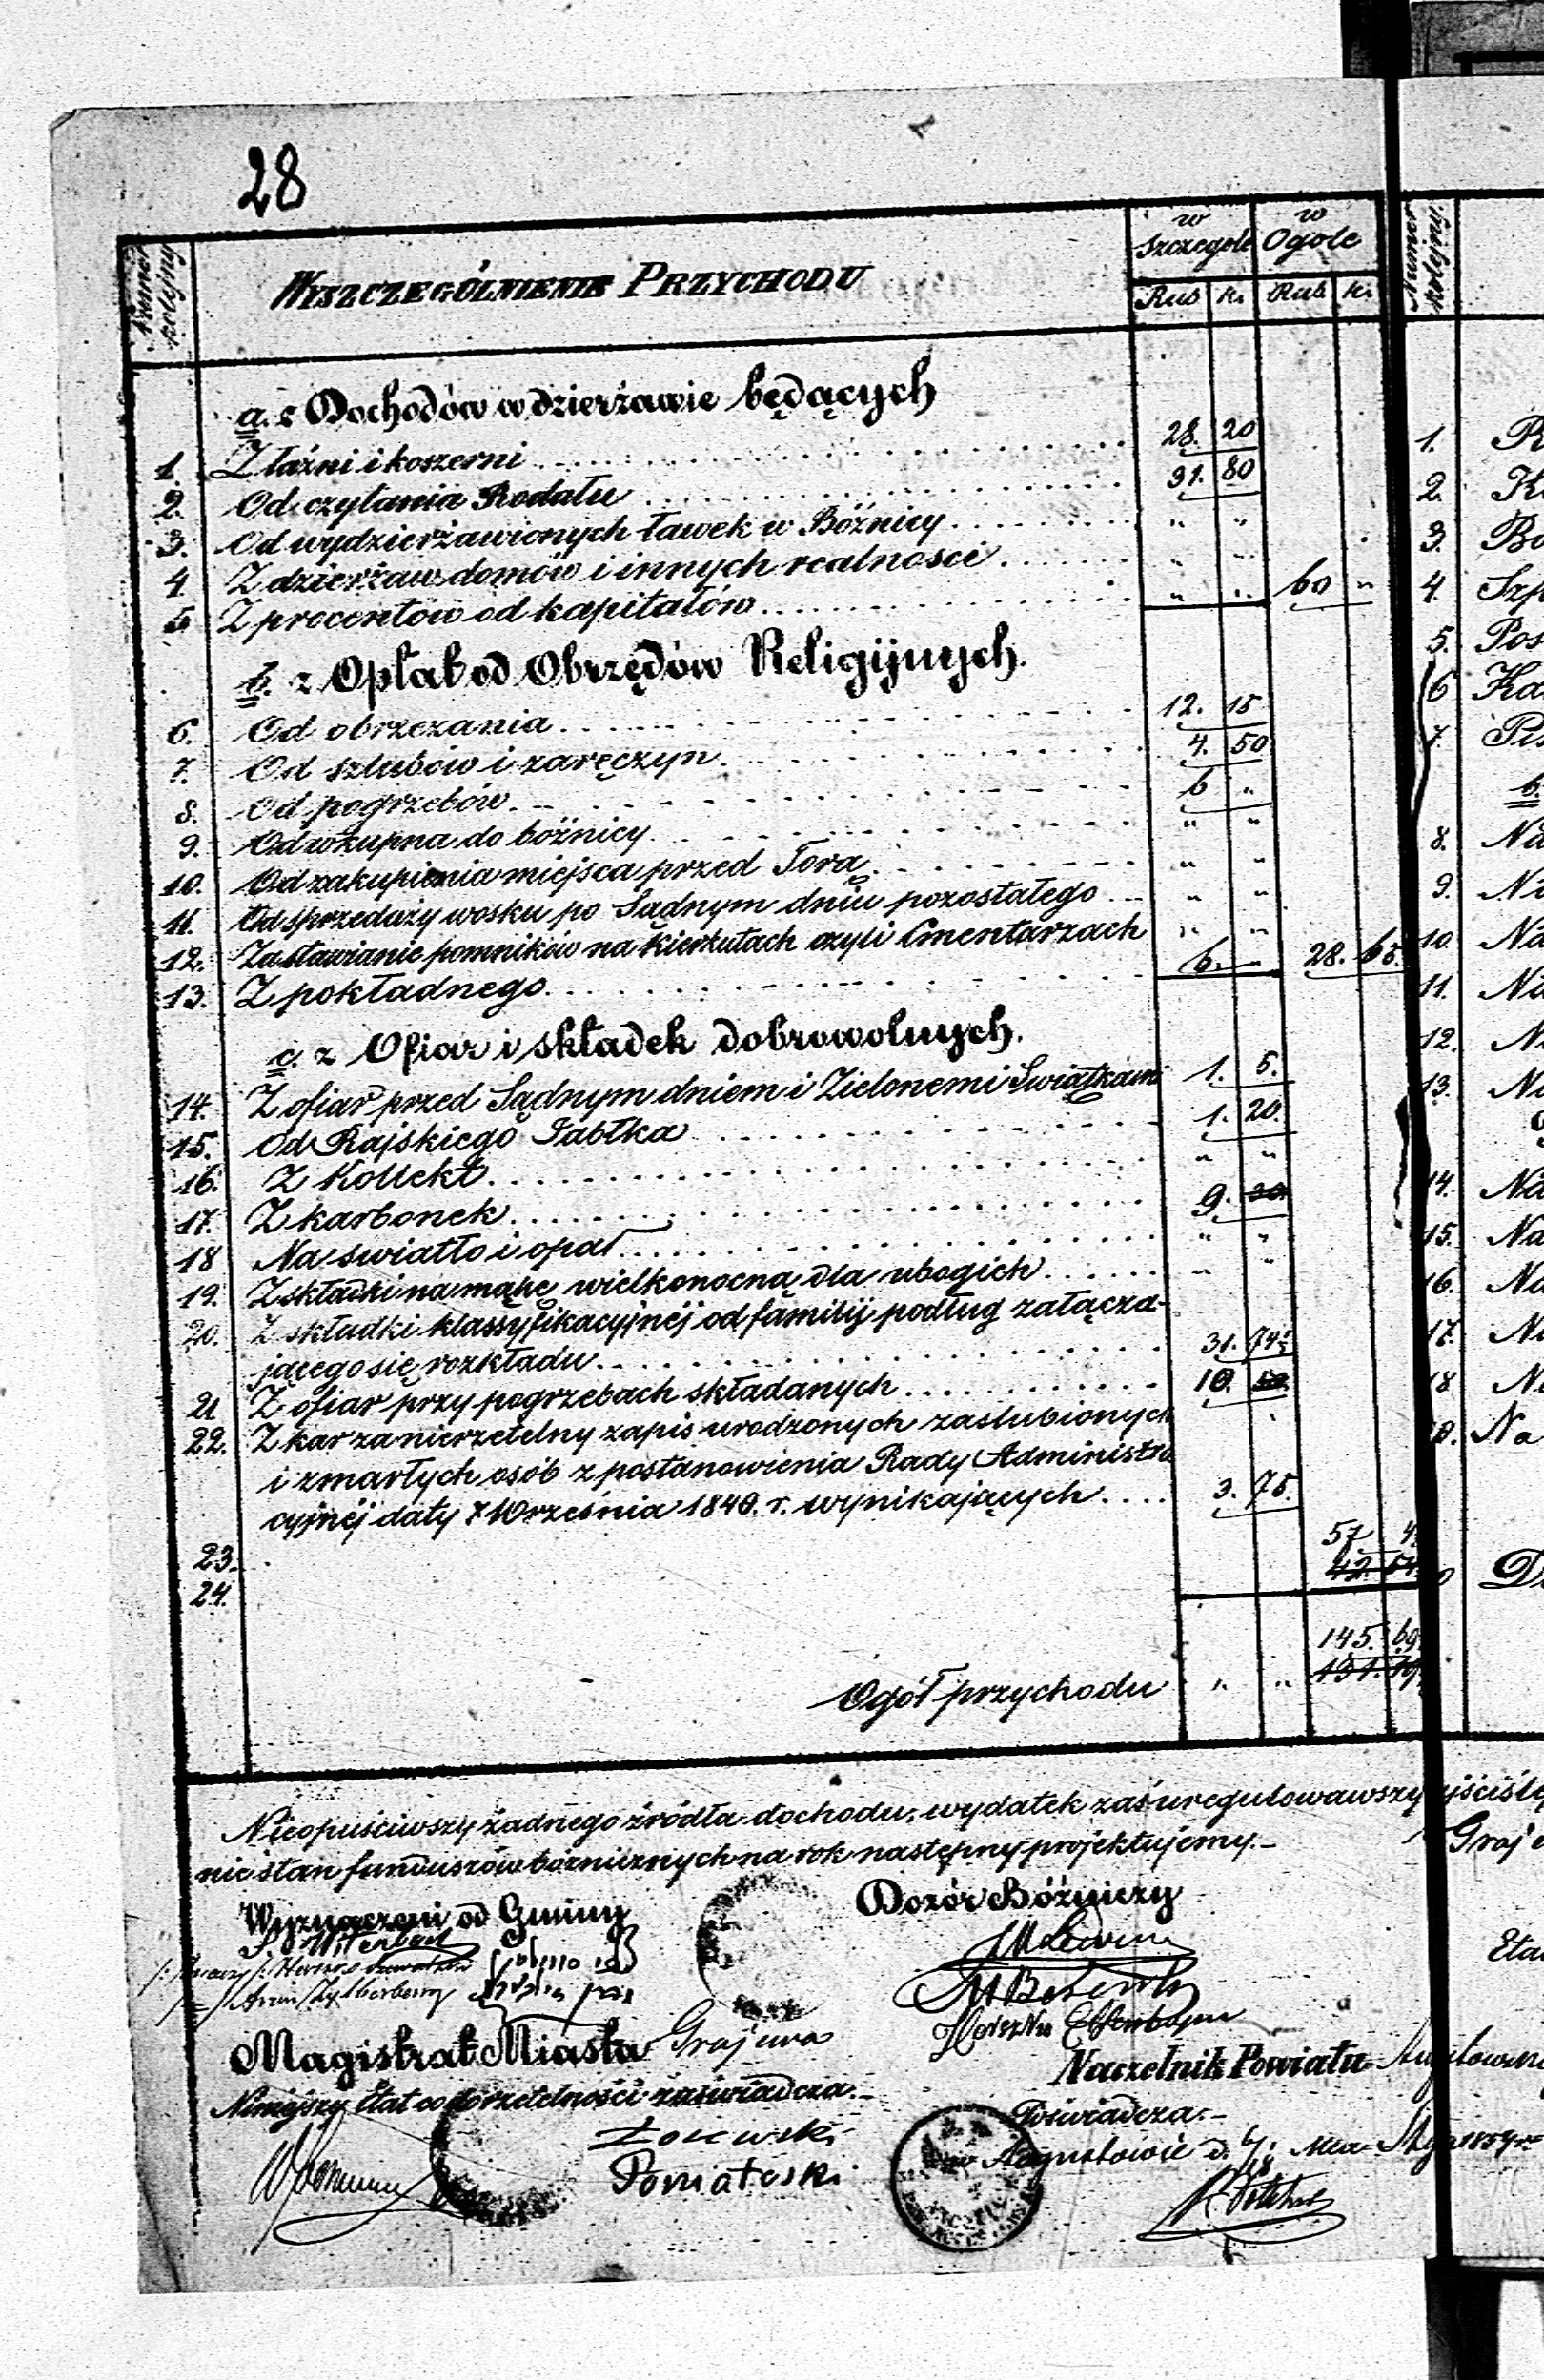 28
Numer kolejny
WYSZCZEGÓLNIENIE PRZYCHODU
w Szczegole
w Ogole
Rus k. Rus k.
Numer kolejny
a. z Dochodów w dzierżawie będących
1. Z łaźni i koszerni 28. 20
2. Od czytania Rodału 31. 80
3. Od wydzierżawionych ławek w Bóźnicy " "
4 Z dzierżaw domów i innych realności " "
5 Z procentów od kapitałów " " 60 "
b. z Opłat od Obrzędów Religijnych.
6. Od obrzezania 12. 15
7. Od szlubów i zaręczyn 4. 50
8. Od pogrzebów 6 "
9. Od wkupna do bóżnicy " "
10. Od zakupienia miejsca przed Torą " "
11. Od sprzedaży wosku po Sądnym dniu pozostałego " "
12. Za stawianie pomników na kierkutach czyli Cmentarzach " "
13. Z pokładnego 6. " 28. 65.
c. z Ofiar i składek dobrowolnych.
14. Z ofiar przed Sądnym dniem i Zielonemi Swiątkami 1. 5.
15. Od Rajskiego Jabłka 1. 20.
16. Z Kollekt " "
17. Z karbonek 9.
18 Na swiatło i opał " "
19. Z składki na mąkę wielkonocną dla ubogich " "
20. Z składki klassyfikacyjnéj od familij podług załącza-
jącego się rozkładu 31.
21 Z ofiar przy pogrzebach składanych 10.
22. Z kar za nierzetelny zapis urodzonych zaslubionych
i zmarłych osób z postanowienia Rady Administra
cyjnéj daty 7 Września 1840. r. wynikających 3. 75.
23. 57
24. 42. 54
145. 69
Ogół przychodu " " 131. 19
Nieopuściwszy żadnego źródła dochodu, wydatek zaś uregulowawszy
nie stan funduszów bóżnicznych na rok następny projektujemy.-
Wyznaczeni od Gminy
Dozór Bóżniczy
Magistrat Miasta Grajewa
Niniejszy Etat co do rzetelności zaświadcza.-
Naczelnik Powiatu
Poświadcza.-
w Augustowie d.
1.
2.
3.
4.
5. Pos
6
7.
b.
8. Na
9.
10. Na
11.
12.
13.
14. Na
15. Na
16. Na
17.
18
Na
Graje
Etat